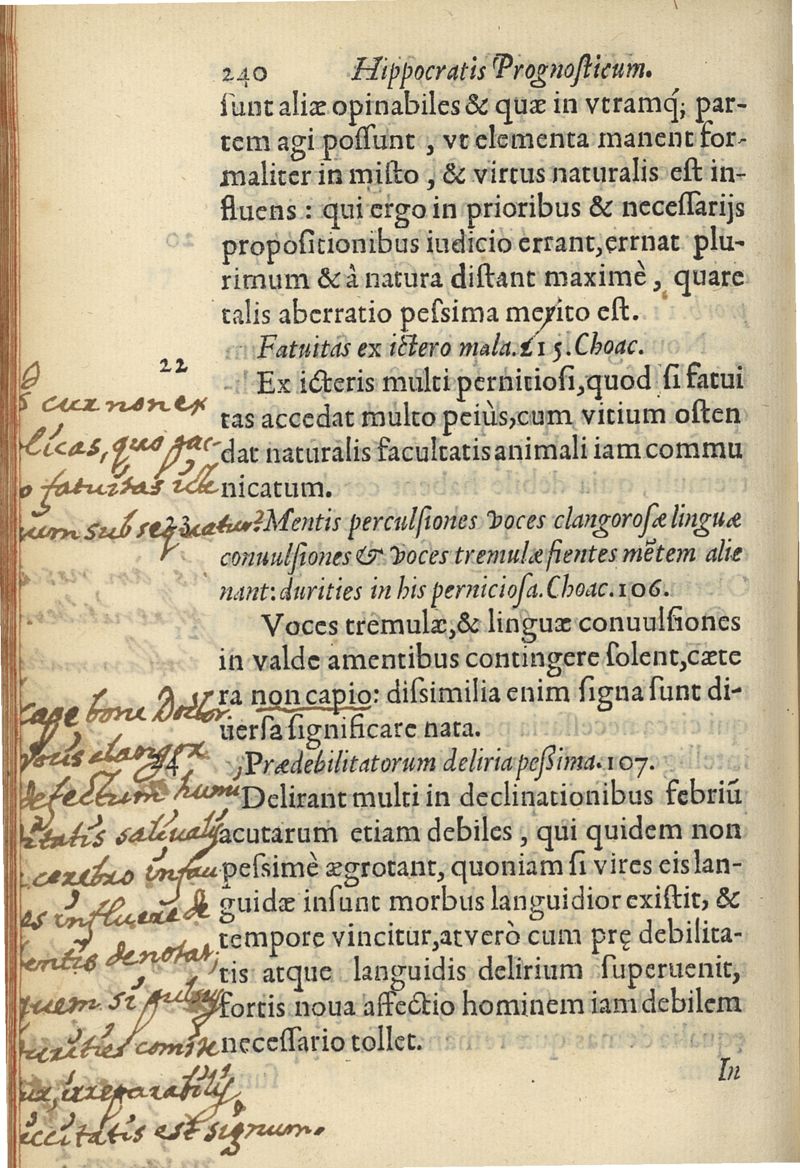 240 Hippocratis Prognosticum.
sunt aliæ opinabiles & quæ in vtramq́; par-
tem agi possunt , vt elementa manent for-
maliter in misto , & virtus naturalis est in-
fluens : qui ergo in prioribus & necessarijs
propositionibus iudicio errant,errnat plu-
rimum & à natura distant maximè , quare
talis aberratio pessima merito est.
Fatuitas ex ictero mala. 215. Choac.
22
Ex icteris multi pernitiosi,quod si fatui
tas accedat multo peiùs,cum vitium osten
dat naturalis facultatis animali iam commu
nicatum.
cur non ex
licas, quo pac-
o fatuitas icte
rum subsequatur?
23 Mentis perculsiones voces clangorosæ linguæ
conuulsiones & voces tremulæ fientes mẽtem alie
nant: durities in his perniciosa. Choac. 106.
Voces tremulæ,& linguæ conuulsiones
in valde amentibus contingere solent,cæte
ra non capio: dissimilia enim signa sunt di-
uersa significare nata.
24 Prædebilitatorum deliria pessima. 107.
Delirant multi in declinationibus febriũ
acutarum etiam debiles , qui quidem non
pessimè ægrotant, quoniam si vires eis lan-
guidæ insunt morbus languidior existit, &
tempore vincitur,atverò cum prę debilita-
tis atque languidis delirium superuenit,
fortis noua affectio hominem iam debilem
necessario tollet.
cape bone Doctor.
vocis clangor
defectum humi
ditatis saliualis
cerebro in fau
es influere de
entis denotat,
quem si
durities comite
tur, irreparabilis
siccitatis est signum.
In